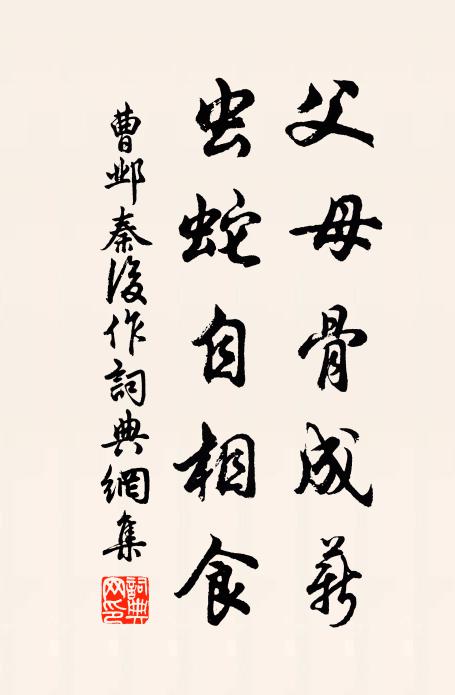 父母骨成薪
虫蛇自相食
曹邺秦後作詞典網集
詞典网印